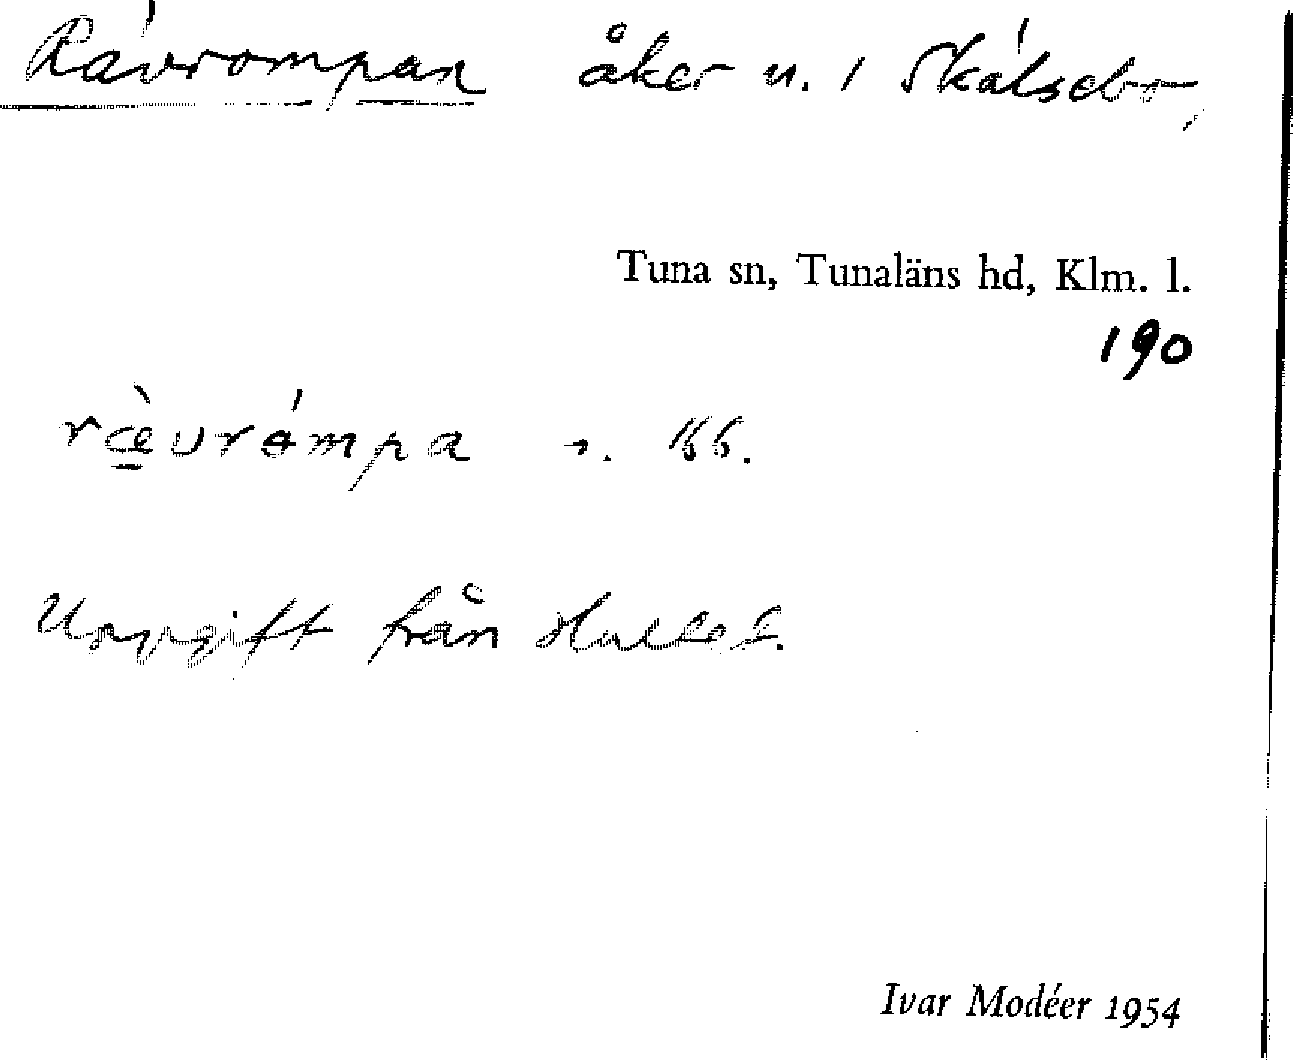 Rävrompan åker u. i Skälsebo,
Tuna sn, Tunaläns hd, Klm. l.
190
ræ̀vrómpa
Uppgift från
Ivar Modéer 1954